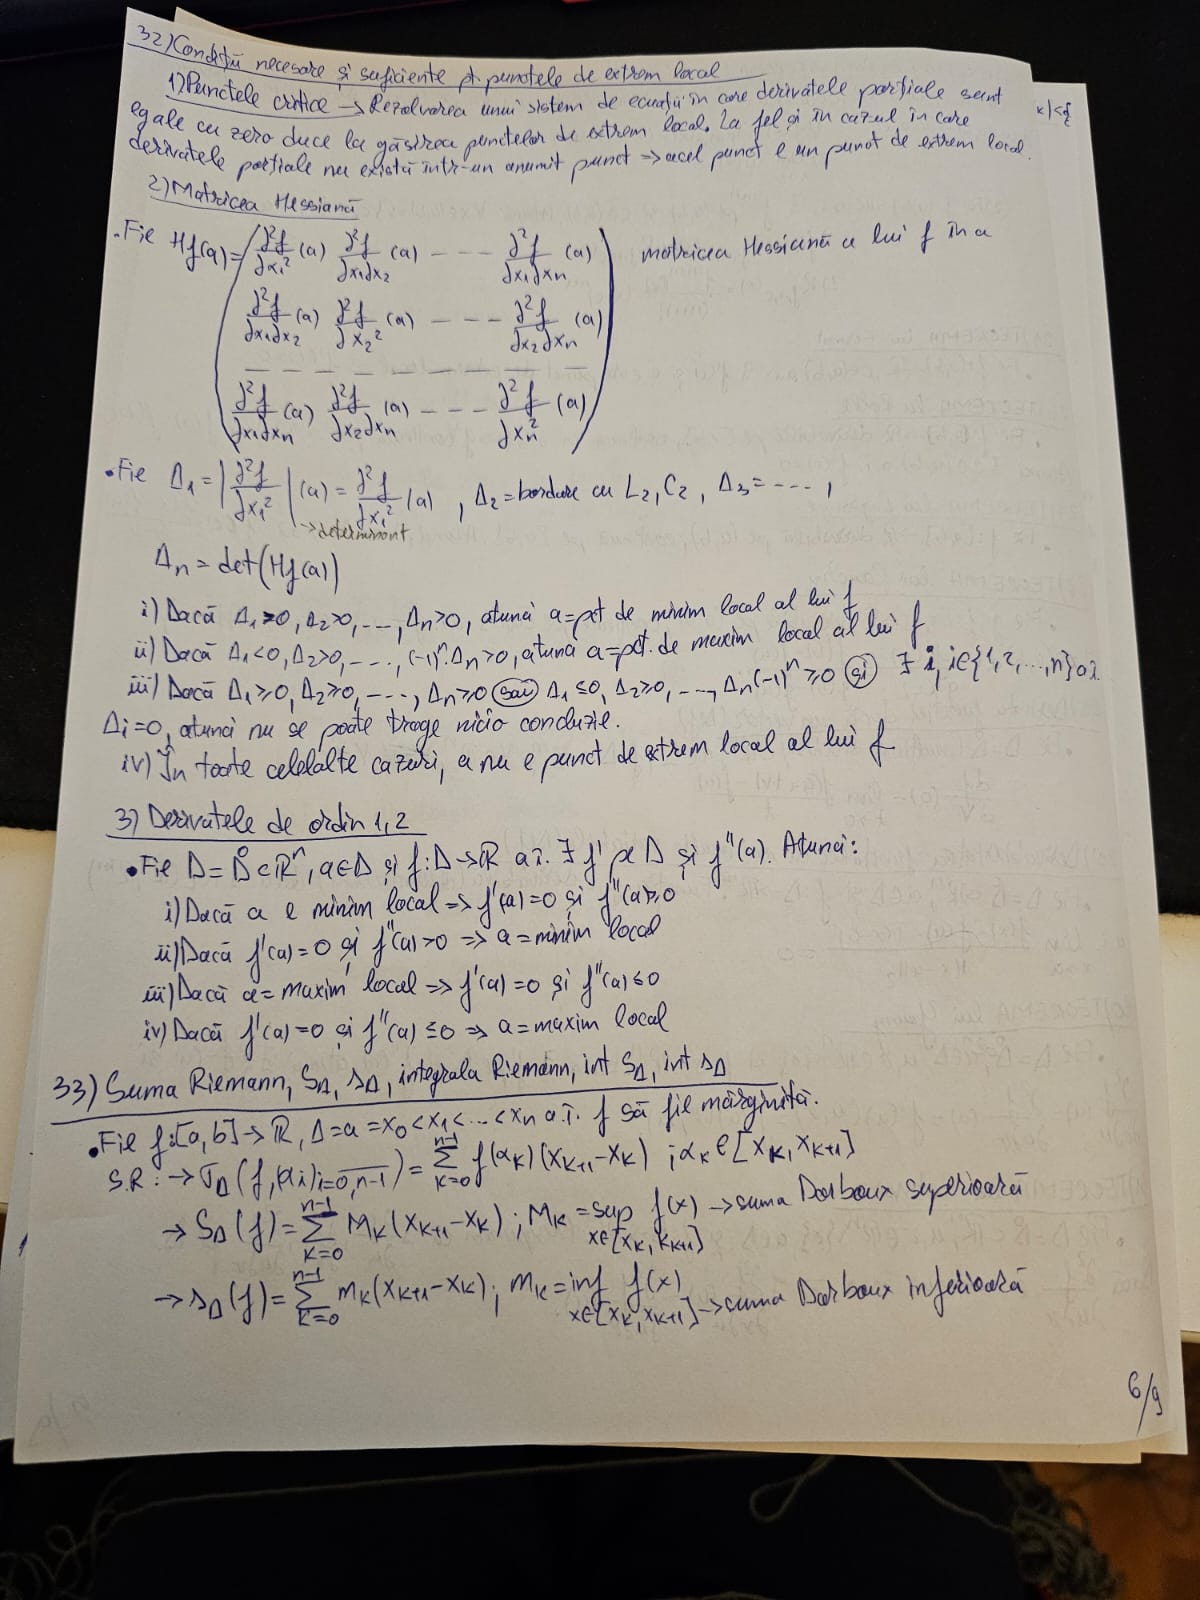 32) Condiții necesare și suficiente pt. punctele de extrem local
1) Punctele critice → Rezolvarea unui sistem de ecuații în care derivatele parțiale sunt
egale cu zero duce la găsirea punctelor de extrem local. La fel și în cazul în care
derivatele parțiale nu există într-un anumit punct => acel punct e un punct de extrem local.
x|<ε
2) Matricea Hessiană
• Fie Hf(a) = ( ∂²f/∂x₁² (a) ∂²f/∂x₁∂x₂ (a) - - - ∂²f/∂x₁∂xₙ (a) matricea Hessiană a lui f în a
∂²f/∂x₁∂x₂ (a) ∂²f/∂x₂² (a) - - - ∂²f/∂x₂∂xₙ (a)
— — — — — — — —
∂²f/∂x₁∂xₙ (a) ∂²f/∂x₂∂xₙ (a) - - - ∂²f/∂xₙ² (a) )
• Fie Δ₁ = |∂²f/∂x₁²| (a) = ∂²f/∂x₁² (a) , Δ₂ = bordare cu L₂, C₂ , Δ₃ = - - - ,
→ determinant
Δₙ = det(Hf(a))
i) Dacă Δ₁>0, Δ₂>0, ---, Δₙ>0, atunci a=pct de minim local al lui f
ii) Dacă Δ₁<0, Δ₂>0, ---, (-1)ⁿ·Δₙ>0, atunci a=pct. de maxim local al lui f
iii) Dacă Δ₁≥0, Δ₂≥0, ---, Δₙ≥0 sau Δ₁≤0, Δ₂≥0, ---, Δₙ(-1)ⁿ≥0 și ∃ i, i∈{1,2,...,n} a.î.
Δi=0, atunci nu se poate trage nicio concluzie.
iv) În toate celelalte cazuri, a nu e punct de extrem local al lui f
3) Derivatele de ordin 1,2
• Fie D = D̊ ⊂ ℝⁿ, a∈D și f:D→ℝ a.î. ∃ f' pe D și f''(a). Atunci:
i) Dacă a e minim local => f'(a)=0 și f''(a)≥0
ii) Dacă f'(a)=0 și f''(a)>0 => a=minim local
iii) Dacă a=maxim local => f'(a)=0 și f''(a)≤0
iv) Dacă f'(a)=0 și f''(a)≤0 => a=maxim local
33) Suma Riemann, SΔ, sΔ, integrala Riemann, int SΔ, int sΔ
• Fie f:[a,b]→ℝ, Δ=a=x₀<x₁<...<xₙ a.î. f să fie mărginită.
S.R: → σΔ(f,(αi)i=0,n-1) = Σ_{k=0}^{n-1} f(αk)(xk+1-xk) ; αk∈[xk,xk+1]
→ SΔ(f) = Σ_{k=0}^{n-1} Mk(xk+1-xk) ; Mk = sup_{x∈[xk,xk+1]} f(x) → suma Darboux superioară
→ sΔ(f) = Σ_{k=0}^{n-1} mk(xk+1-xk) ; mk = inf_{x∈[xk,xk+1]} f(x) → suma Darboux inferioară
6/9